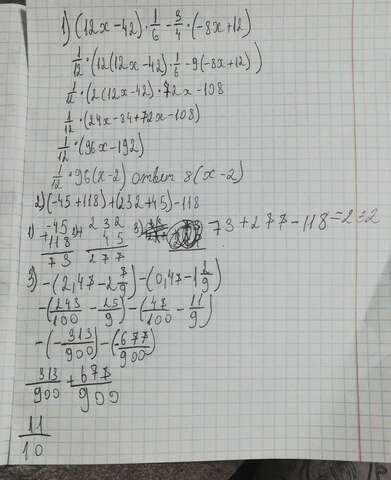 1) (12x-42)·1/6-3/4·(-8x+12)
1/12·(12(12x-42)·1/6-9(-8x+12))
1/12·(2(12x-42)·72x-108
1/12·(24x-84+72x-108)
1/12·(96x-192)
1/12·96(x-2) ответ 8(x-2)
2) (-45+118)+(232+45)-118
1) -45 + 118 = 73
2) 232 + 45 = 277
3) 73+277-118=232
3) -(2,47-2 7/9)-(0,47-1 2/9)
-(243/100-25/9)-(47/100-11/9)
-(-313/900)-(-677/900)
313/900+677/900
11/10